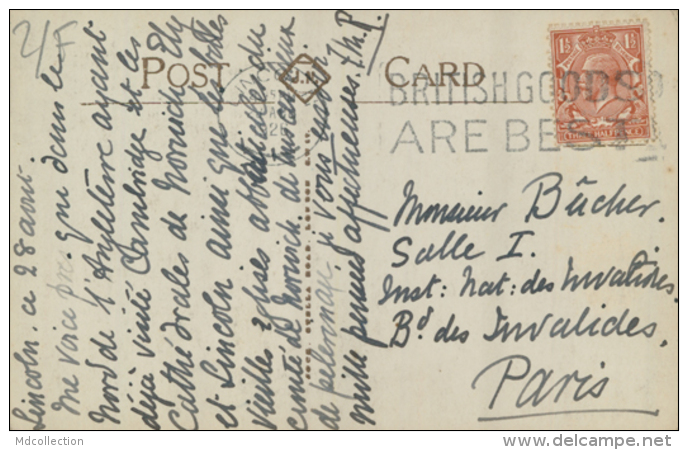 2/-
POST CARD
BRITISH GOODS
ARE BEST
1½ 1½
THREE HALFPENCE
Lincoln. ce 28 août.
Me voici presque dans le
Nord de l'Angleterre ayant
déjà visité Cambridge et les
Cathédrales de Norwich, Ely
et Lincoln ainsi que les belles
vieilles Eglises abbatiales du
comté de Norwich. de mon lieu
de pelerinage je vous envoie
mille pensées affectueuses.
Monsieur Bûcher.
Salle I.
Inst: Nat: des Invalides.
Bd des Invalides.
Paris
Mdcollection
www.delcampe.net